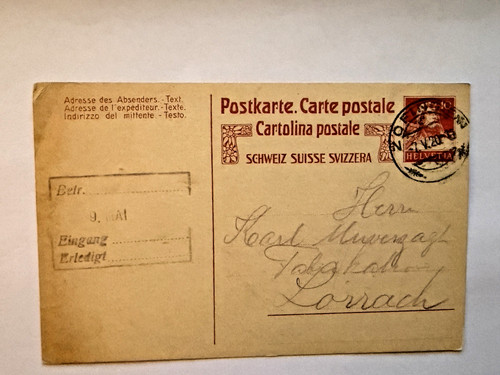 Adresse des Absenders.-Text.
Adresse de l'expéditeur.-Texte.
Indirizzo del mittente.-Testo.
Postkarte. Carte postale
Cartolina postale
SCHWEIZ SUISSE SVIZZERA
HELVETIA
Betr.
9. MAI
Eingang
Erledigt
Herrn
Karl
Lörrach